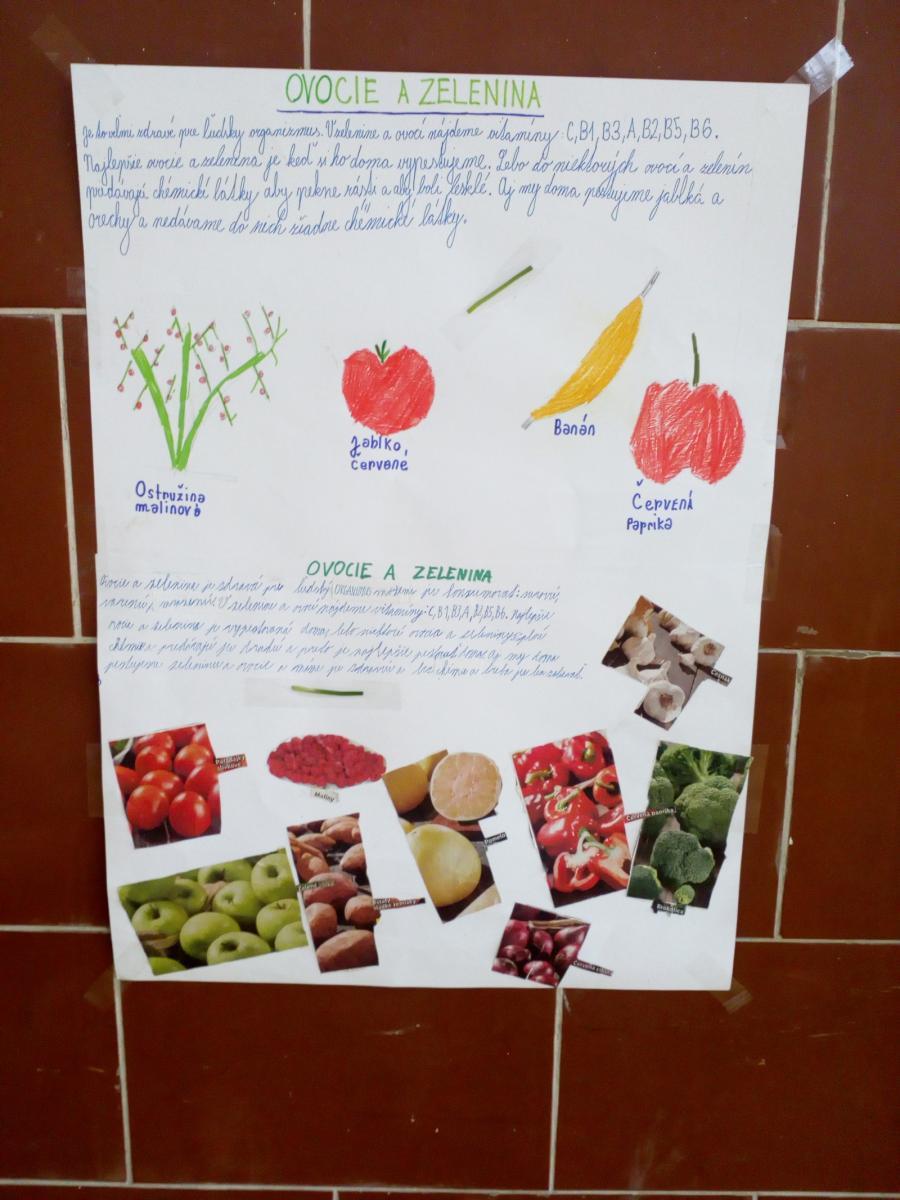 OVOCIE A ZELENINA
Je to veľmi zdravé pre ľudský organizmus. V zelenine a ovocí nájdeme vitamíny: C,B1,B3,A,B2,B5,B6.
Najlepšie ovocie a zelenina je keď si ho doma vypestujeme. Lebo do niektorých ovocí a zelenín
pridávajú chémické látky aby pekne rástli a aby boli lesklé. Aj my doma pestujeme jablká a
orechy a nedávame do nich žiadne chémické látky.
Ostružina
malinová
Jablko
červené
Banán
Červená
Paprika
OVOCIE A ZELENINA
Ovocie a zelenina je zdravé pre ľudský ORGANIZMUS môžeme ju konzumovať: surovú,
varenú, V zelenine a ovocí nájdeme vitamíny: C,B1,B3,A,B2,B5,B6. Najlepšie
ovocie a zelenina je vypestovaná doma, lebo niektoré ovocia a zeleniny
chémiu a preto je najlepšie pestovať doma aj my doma
pestujeme zeleninu a ovocie a máme je zdravšie a bez chémie a
Cesnak
Paradajky
Maliny
Pomelo
Červená paprika
Batáty
sladké zemiaky
Brokolica
Červená cibuľa